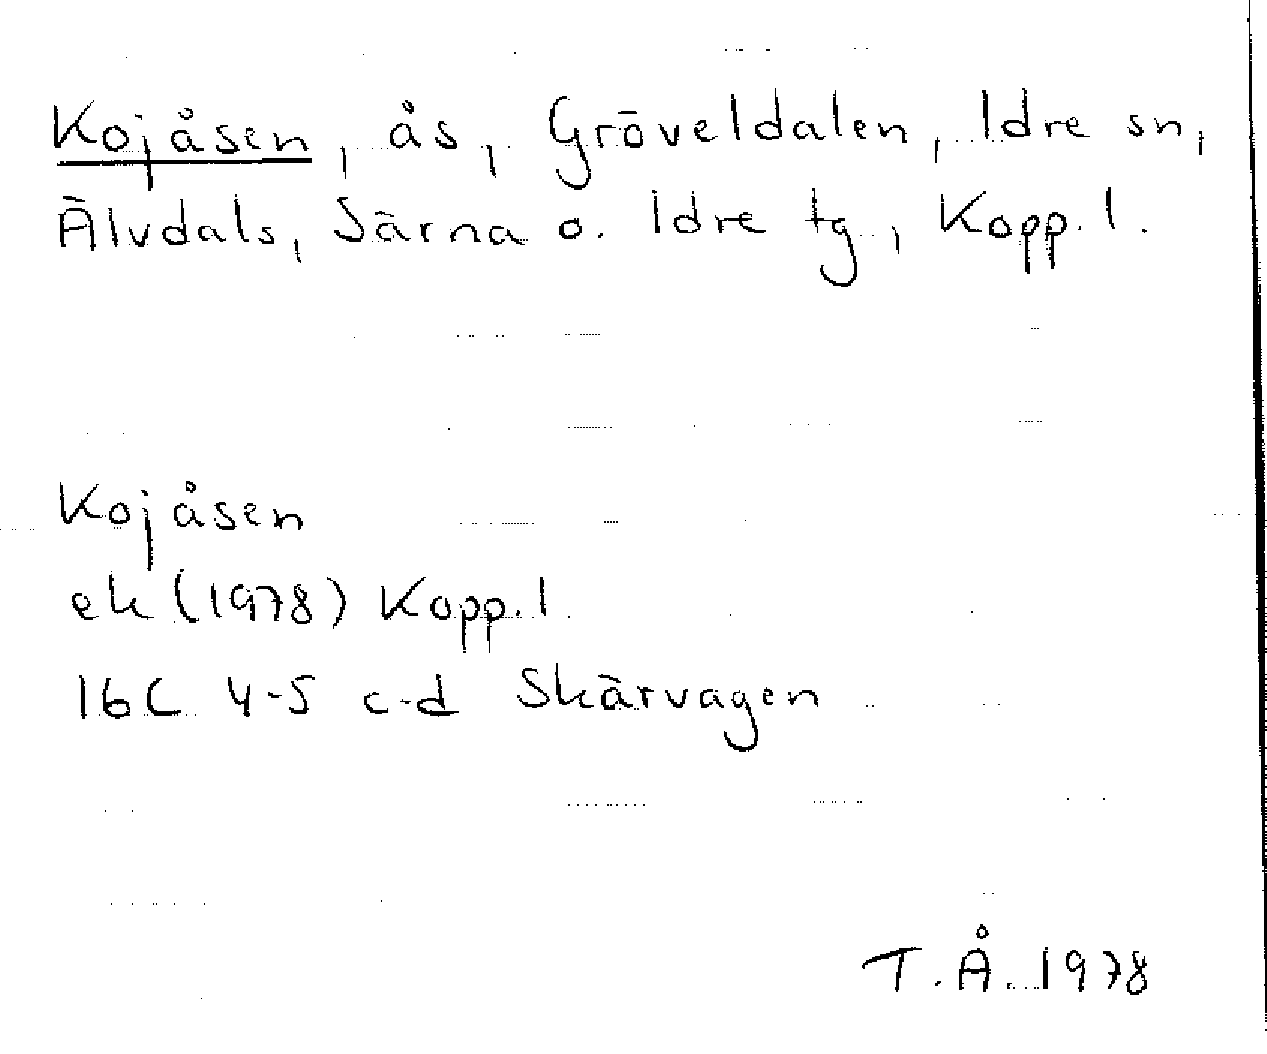 Kojåsen, ås, Gröveldalen, Idre sn,
Älvdals, Särna o. Idre tg, Kopp. l.
Kojåsen
ek (1978) Kopp. l.
16C 4-5 c-d Skärvagen
T. Å. 1978